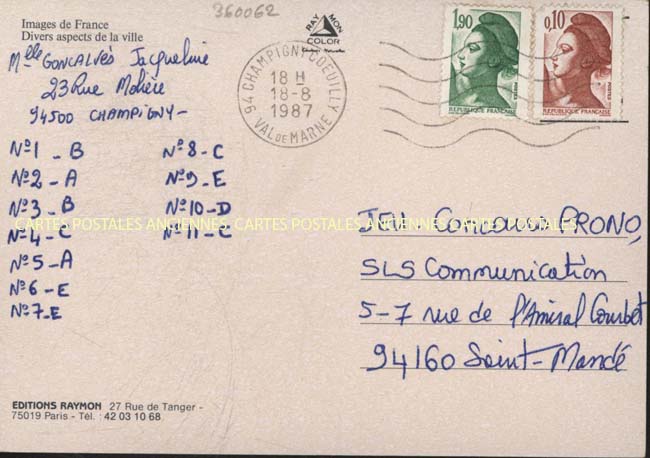 360062
Images de France
Divers aspects de la ville
Mlle GONCALVÈS Jacqueline
23 Rue Molière
94500 CHAMPIGNY-
Nº1 - B
Nº2 - A
Nº3 - B
Nº4 - C
Nº5 - A
Nº6 - E
Nº7 - E
Nº8 - C
Nº9 - E
Nº10 - D
Nº11 - C
RAYMON
COLOR
94 CHAMPIGNY-COEUILLY
18 H
18-8
1987
VAL DE MARNE
1,90
POSTES
REPUBLIQUE FRANÇAISE
0,10
POSTES
REPUBLIQUE FRANÇAISE
CARTES POSTALES ANCIENNES CARTES POSTALES ANCIENNES CARTES POSTALES
JEU-Concours PRONO,
SLS Communication
5-7 rue de l'Amiral Courbet
94160 Saint-Mandé
EDITIONS RAYMON 27 Rue de Tanger -
75019 Paris - Tél. : 42 03 10 68